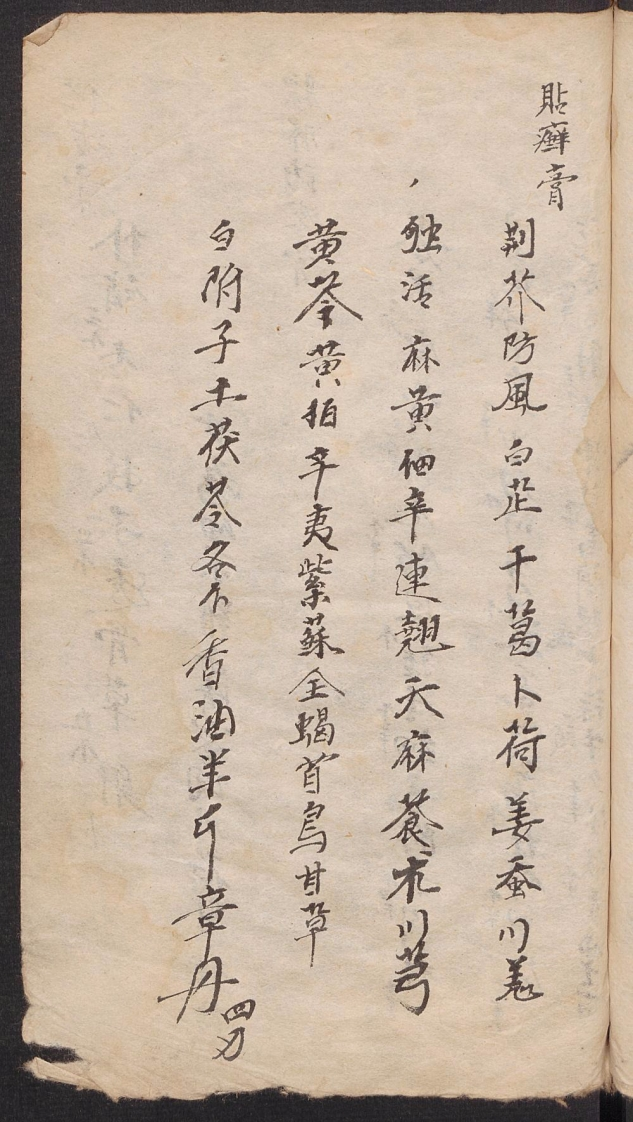 貼癬膏
荆芥防風白芷干葛卜荷姜蚕川羗
独活麻黄细辛連翹天麻蒼朮川芎
黄芩黄栢辛夷紫蘇全蝎首烏甘草
白附子土茯苓各 香油半斤章丹四刃